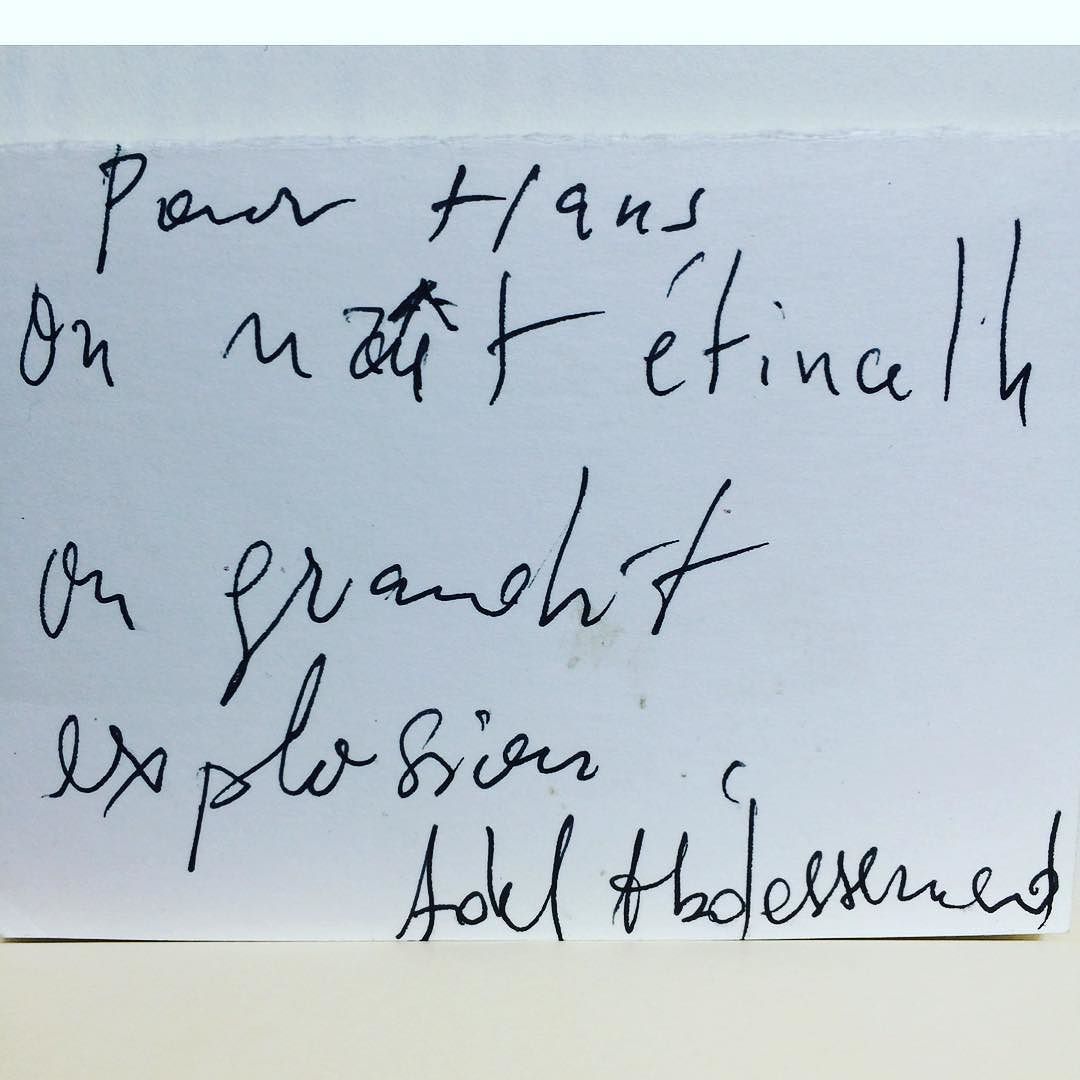 Pour Hans
On naît étincelle
on grandit
explosion.
Adel Abdessemed